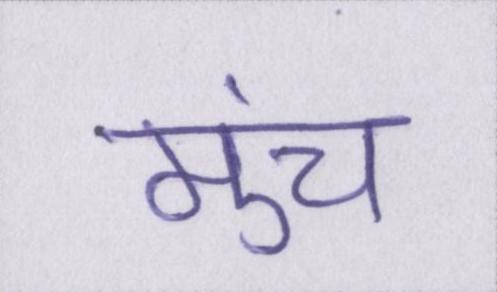 मुंच